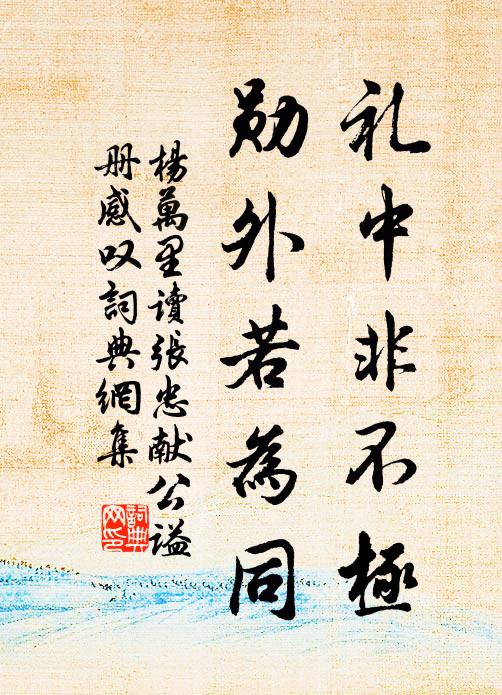 礼中非不極
勋外若為同
楊萬里讀張忠献公謚
册感叹詞典網集
詞典网印